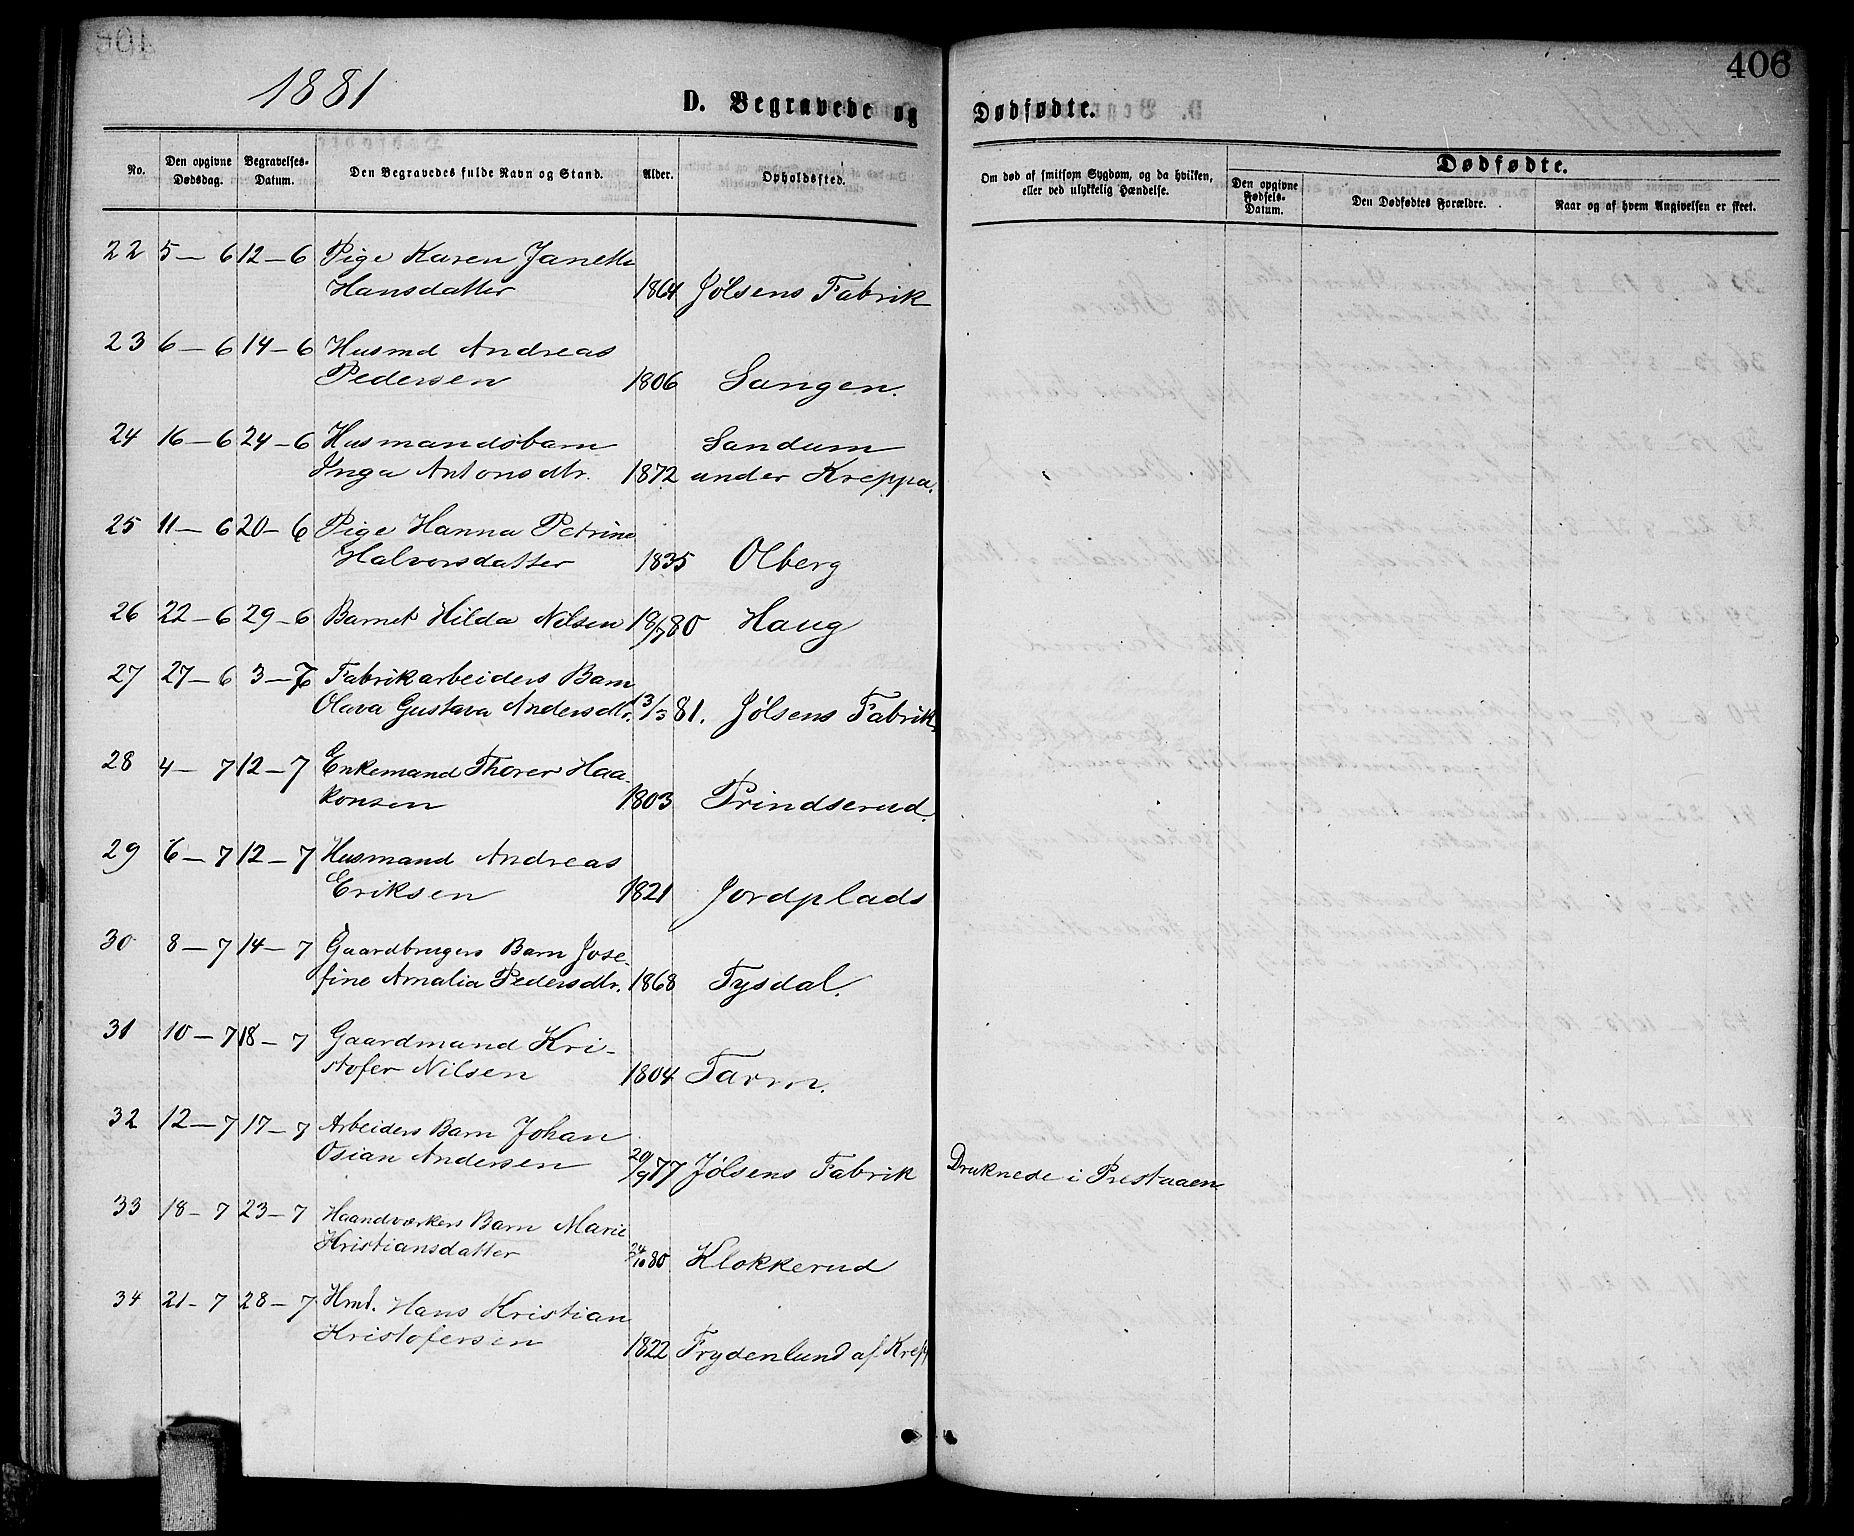 406
1881
D. Begravede og Dødfødte.
No.
Den opgivne Dødsdag.
Begravelses-Datum.
Den Begravedes fulde Navn og Stand.
Alder.
Opholdssted.
Om død af smitsom Sygdom, og da hvilken, eller ved ulykkelig Hændelse.
Dødfødte.
Den opgivne Fødsels-Datum.
Den Dødfødtes Forældre.
Naar og af hvem Angivelsen er skeet.
22 5-6 12-6 Pige Karen Janette
Hansdatter 1864 Jølsens Fabrik
23 6-6 14-6 Husmd Andreas
Pedersen 1806 Sangen.
24 16-6 24-6 Husmandsbarn Sandum
Inga Antonsdtr. 1872 under Kreppa.
25 11-6 20-6 Pige Hanna Petrine
Halvorsdatter 1835 Olberg
26 22-6 29-6 Barnet Hilda Nilsen 18/7 80 Haug
27 27-6 3-7 Fabrikarbeiders Barn
Olava Gustava Andersdtr. 13/3 81. Jølsens Fabrik.
28 4-7 12-7 Enkemand Thorer Haa-
konsen 1803 Prindserud.
29 6-7 12-7 Husmand Andreas
Eriksen 1821 Jordplads
30 8-7 14-7 Gaardbrugers Barn Jose-
fine Amalia Pedersdtr. 1868 Tysdal.
31 10-7 18-7 Gaardmand Kri-
stofer Nilsen 1804 Tarm.
32 12-7 17-7 Arbeiders Barn Johan
Osian Andersen 29/9 77 Jølsens Fabrik Druknede i Prestaaen
33 18-7 23-7 Haandværkers Barn Marie
Kristiansdatter 24/10 80 Klokkerud
34 21-7 28-7 Hmd. Hans Kristian
Kristofersen 1822 Frydenlund af Krep